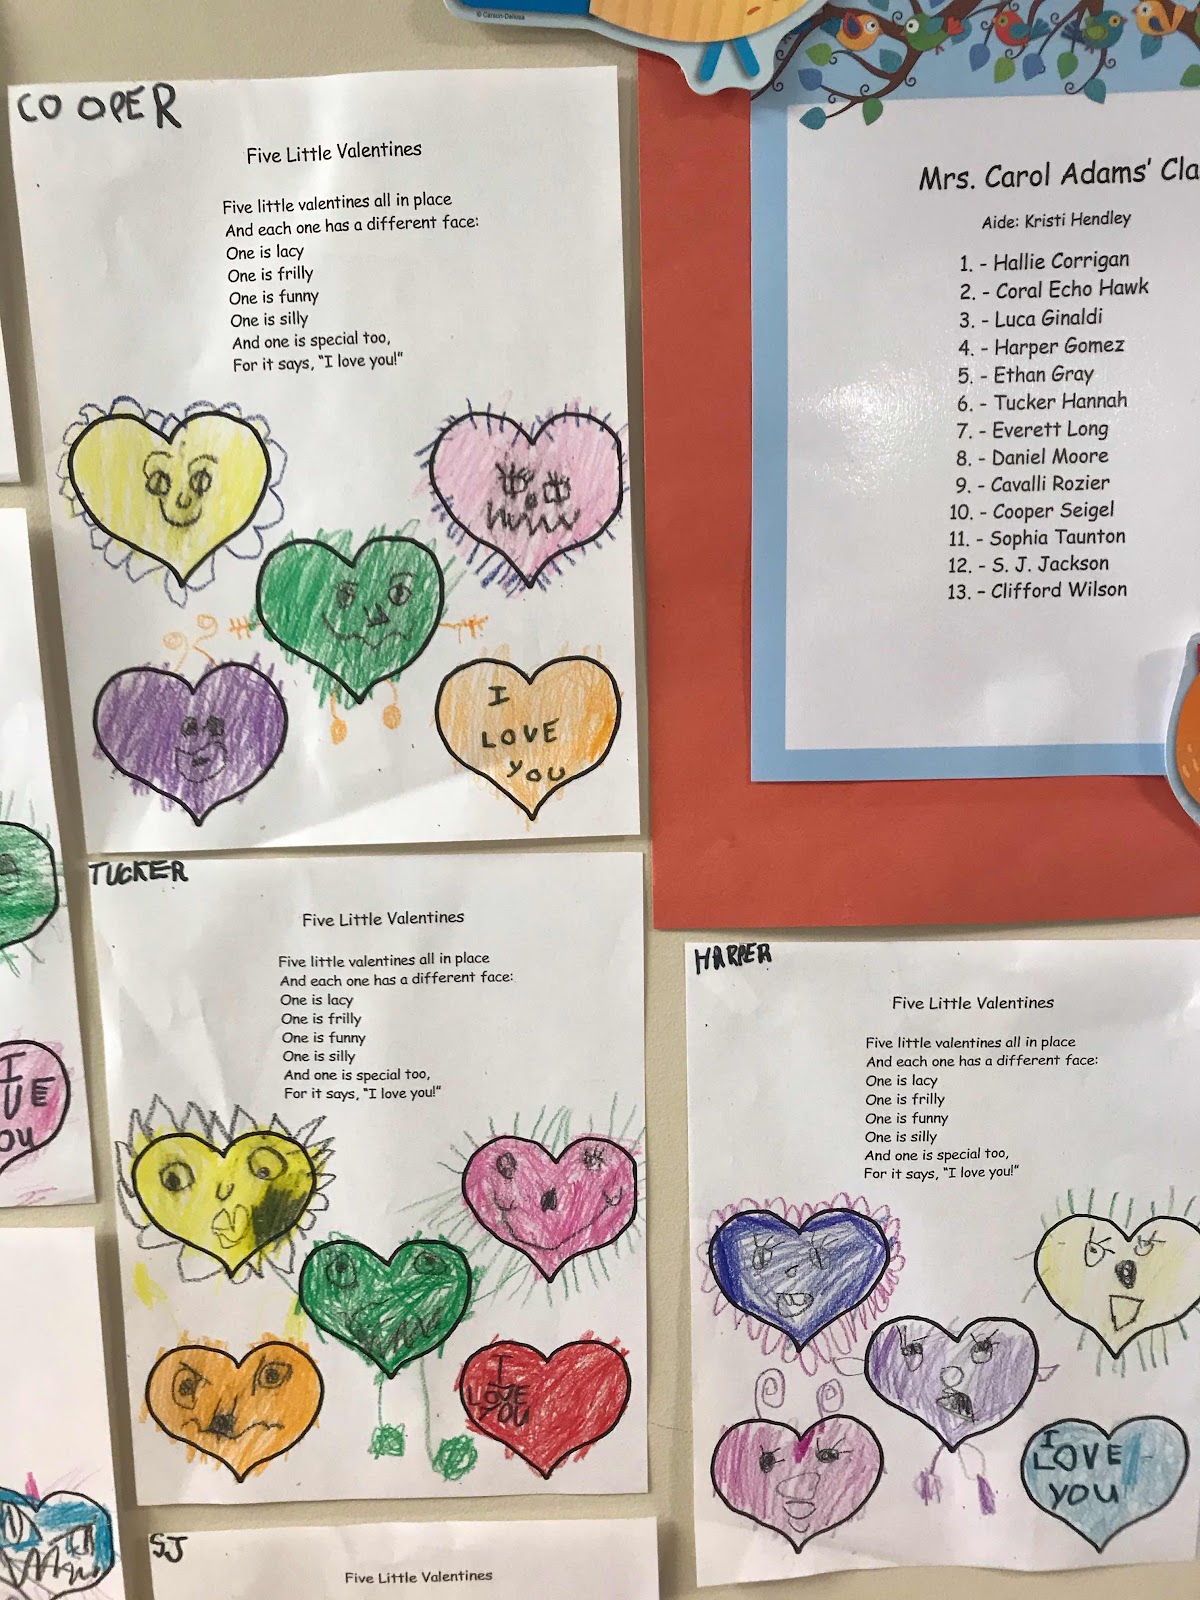 © Carson-Dellosa
COOPER
Five Little Valentines
Five little valentines all in place
And each one has a different face:
One is lacy
One is frilly
One is funny
One is silly
And one is special too,
For it says, "I love you!"
I
LOVE
YOU
Mrs. Carol Adams' Cla
Aide: Kristi Hendley
1. - Hallie Corrigan
2. - Coral Echo Hawk
3. - Luca Ginaldi
4. - Harper Gomez
5. - Ethan Gray
6. - Tucker Hannah
7. - Everett Long
8. - Daniel Moore
9. - Cavalli Rozier
10. - Cooper Seigel
11. - Sophia Taunton
12. - S. J. Jackson
13. - Clifford Wilson
TUCKER
Five Little Valentines
Five little valentines all in place
And each one has a different face:
One is lacy
One is frilly
One is funny
One is silly
And one is special too,
For it says, "I love you!"
I
LOVE
YOU
HARPER
Five Little Valentines
Five little valentines all in place
And each one has a different face:
One is lacy
One is frilly
One is funny
One is silly
And one is special too,
For it says, "I love you!"
I
LOVE
YOU
I
UE
ou
SJ
Five Little Valentines